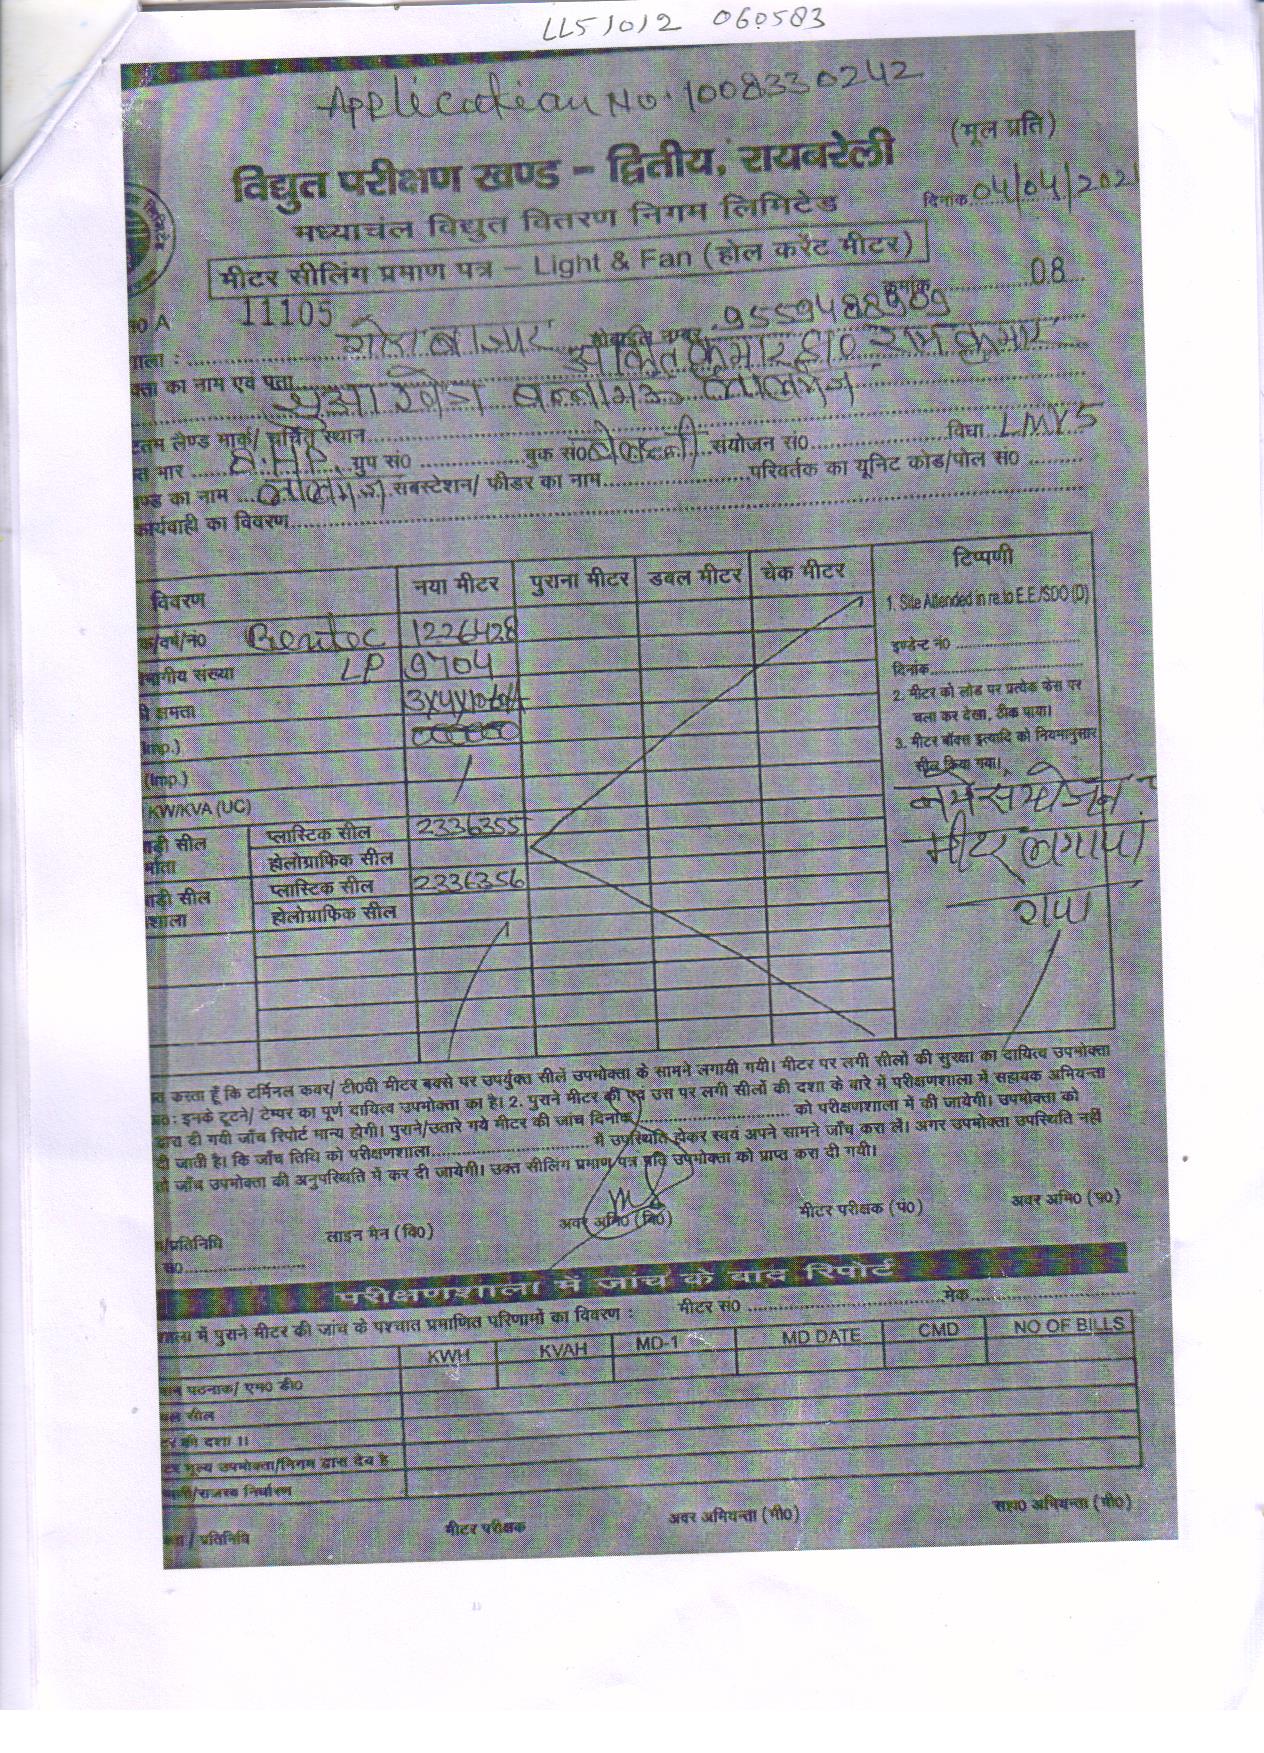 LL51012 060583
Application No. 1008330242
(मूल प्रति)
विद्युत परीक्षण खण्ड – द्वितीय, रायबरेली
मध्याचंल विद्युत वितरण निगम लिमिटेड
दिनांक 04/04/2021
मीटर सीलिंग प्रमाण पत्र – Light & Fan (होल करेंट मीटर)
A 11105 क्रमांक 08
मोबाईल नम्बर 9559488909
ाला :
क्ता का नाम एवं पता अंकित कुमार S/o राम कुमार
लालगंज
तम लैण्ड मार्क/ चर्चित स्थान
त भार 8.HP ग्रुप सं0 बुक सं0 संयोजन सं0 विधा LMV5
ण्ड का नाम लालगंज सबस्टेशन/ फीडर का नाम परिवर्तक का यूनिट कोड/पोल स0
कार्यवाही का विवरण
विवरण नया मीटर पुराना मीटर डबल मीटर चेक मीटर टिप्पणी
क/वर्ष/नं0 1226428
भागीय संख्या LP 9704
क्षमता
Imp.)
(Imp.)
KW/KVA (UC)
ाड़ी सील प्लास्टिक सील 2336355
र्माता होलोग्राफिक सील
ाड़ी सील प्लास्टिक सील 2336356
शाला होलोग्राफिक सील
1. Site Attended in re.to E.E./SDO (D)
इण्डेन्ट नं0
दिनांक
2. मीटर को लोड पर प्रत्येक फेस पर
चला कर देखा, ठीक पाया।
3. मीटर बॉक्स इत्यादि को नियमानुसार
सील किया गया।
नये संयोजन
मीटर लगाया
गया
त करता हूँ कि टर्मिनल कवर/ टी0वी मीटर बक्से पर उपर्युक्त सीलें उपभोक्ता के सामने लगायी गयी। मीटर पर लगी सीलों की सुरक्षा का दायित्व उपभोक्ता
इनके टूटने/ टेम्पर का पूर्ण दायित्व उपभोक्ता का है। 2. पुराने मीटर की एवं उस पर लगी सीलों की दशा के बारे में परीक्षणशाला में सहायक अभियन्ता
द्वारा दी गयी जाँच रिपोर्ट मान्य होगी। पुराने/उतारे गये मीटर की जांच दिनांक को परीक्षणशाला में की जायेगी। उपभोक्ता को
दी जाती है। कि जाँच तिथि को परीक्षणशाला में उपस्थिति होकर स्वयं अपने सामने जाँच करा लें। अगर उपभोक्ता उपस्थिति नहीं
तो जाँच उपभोक्ता की अनुपस्थिति में कर दी जायेगी। उक्त सीलिंग प्रमाण पत्र प्रति उपभोक्ता को प्राप्त करा दी गयी।
/प्रतिनिधि लाइन मैन (वि0) अवर अभि0 (वि0) मीटर परीक्षक (प0) अवर अभि0 (प0)
स0
परीक्षणशाला में जांच के बाद रिपोर्ट
ाला में पुराने मीटर की जांच के पश्चात प्रमाणित परिणामों का विवरण : मीटर स0 मेक
KWH KVAH MD-1 MD DATE CMD NO OF BILLS
पठनाक/ एम0 डी0
सील
की दशा
मूल्य उपभोक्ता/निगम द्वारा देय है
/राजस्व निर्धारण
/ प्रतिनिधि मीटर परीक्षक अवर अभियन्ता (मी0) सहा0 अभियन्ता (मी0)